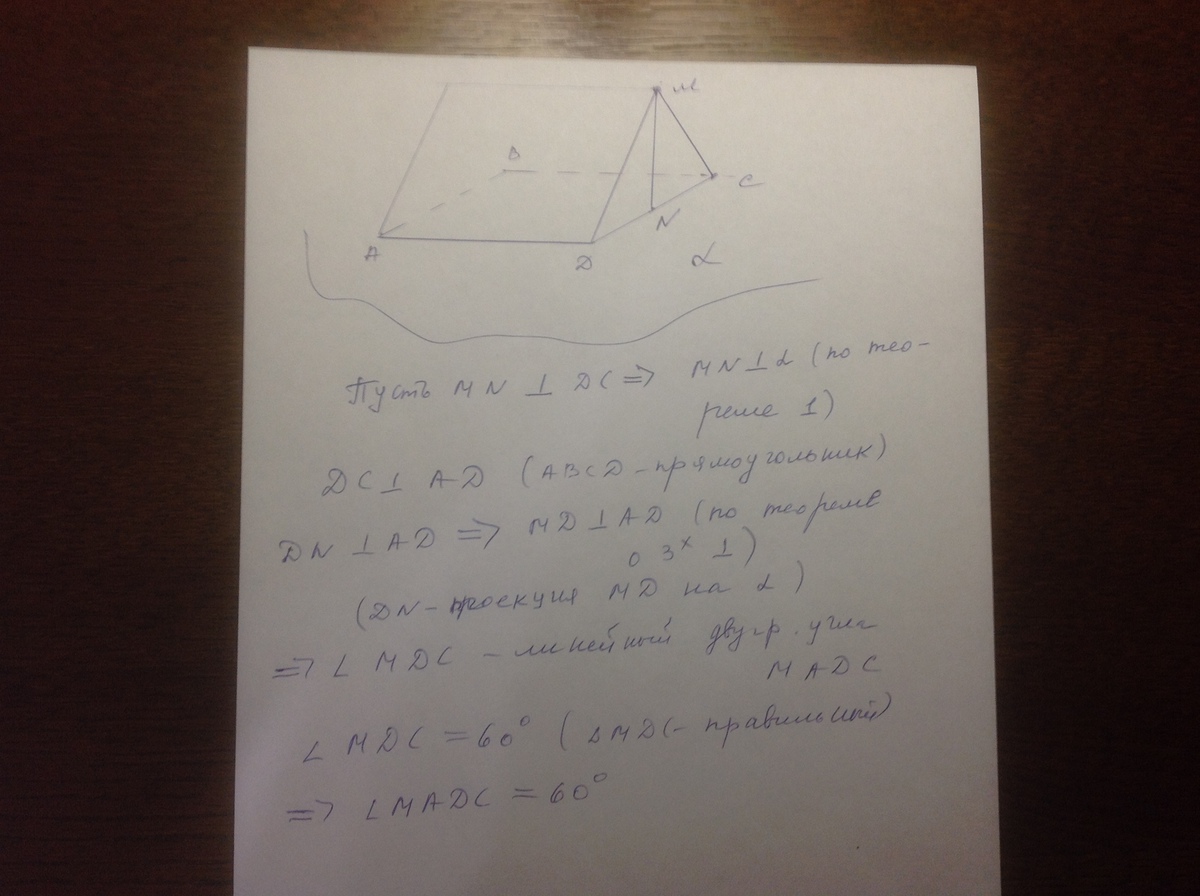 M
B
C
N
A
D
α
Пусть MN ⊥ DC => MN⊥α (по тео-
реме 1)
DC⊥ AD (ABCD-прямоугольник)
DN ⊥ AD => MD ⊥ AD (по теореме
о 3х ⊥)
(DN-проекция MD на α)
=> ∠ MDC - линейный двугр. угла
MADC
∠ MDC = 60° (ΔMDC- правильный)
=> ∠MADC = 60°